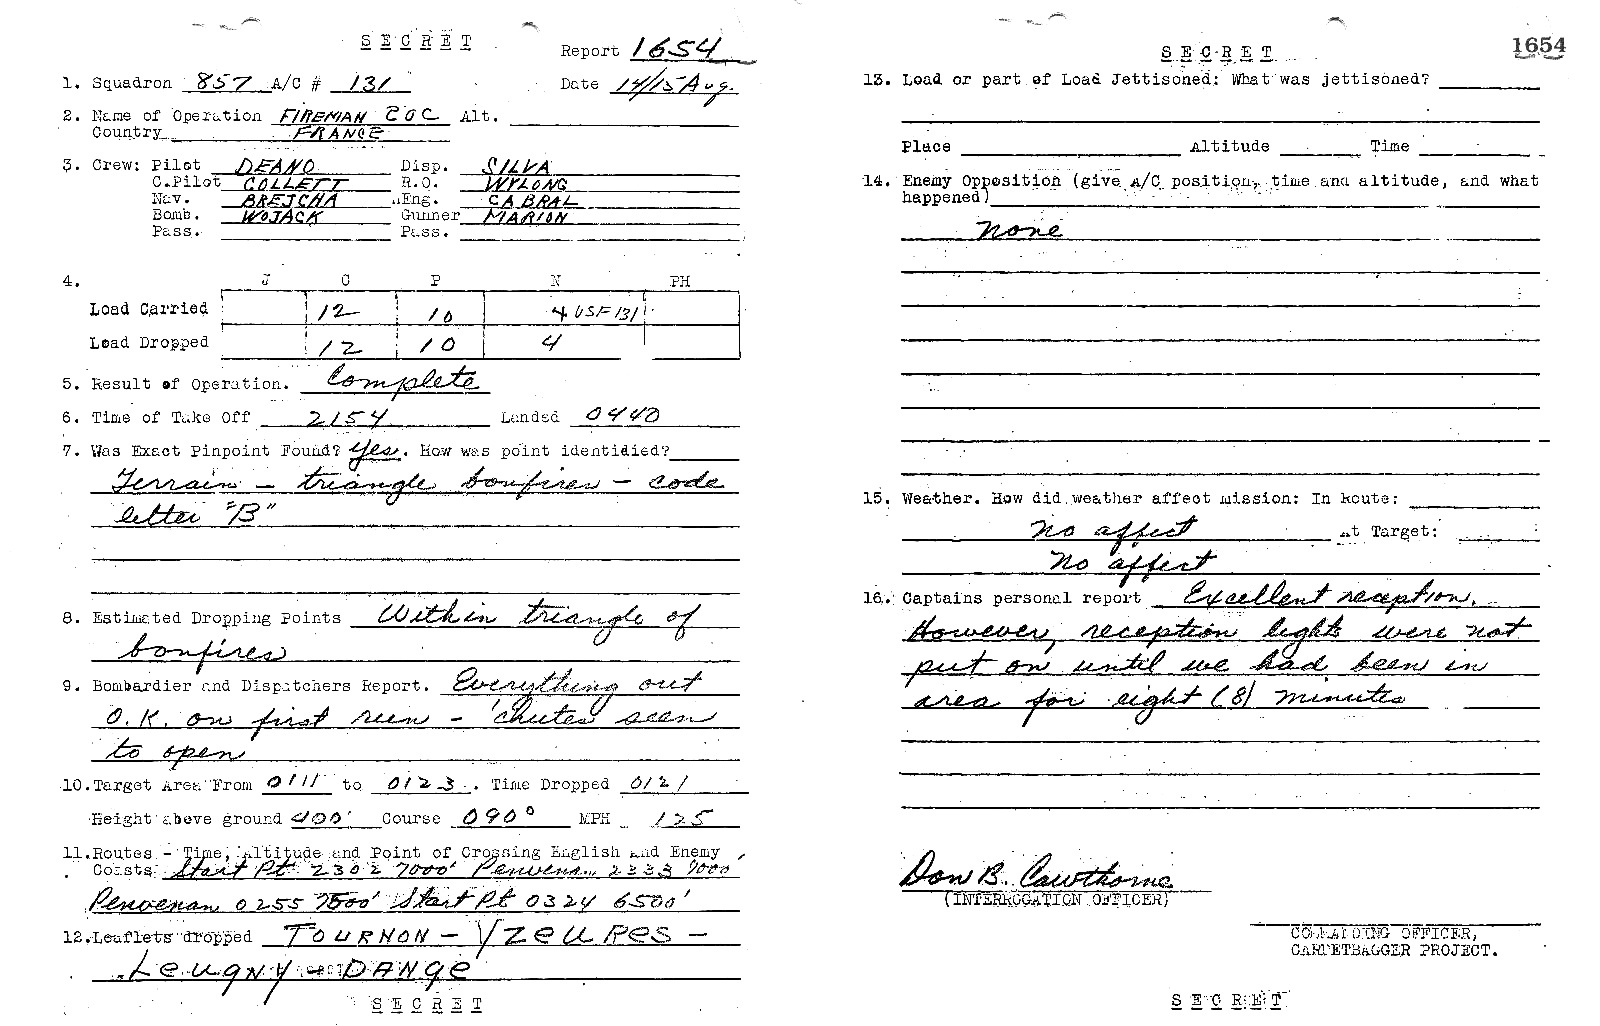 SECRET
Report 1654
1. Squadron 857 A/C # 131 Date 14/15 Aug.
2. Name of Operation FIREMAN 20C Alt.
Country FRANCE
3. Crew: Pilot DEANO Disp. SILVA
C.Pilot COLLETT R.O. WYLONG
Nav. BREJCHA Eng. CABRAL
Bomb. WOJACK Gunner MARION
Pass. Pass.
4. J C P N PH
Load Carried 12 10 4 USF 131
Load Dropped 12 10 4
5. Result of Operation. Complete
6. Time of Take Off 2154 Landed 0440
7. Was Exact Pinpoint Found? Yes. How was point identidied?
Terrain - triangle bonfires - code
letter "B"
8. Estimated Dropping Points Within triangle of
bonfires
9. Bombardier and Dispatchers Report. Everything out
O.K. on first run - 'chutes seen
to open
10. Target Area From 0111 to 0123. Time Dropped 0121
Height above ground 400' Course 090° MPH 125
11. Routes - Time, Altitude and Point of Crossing English and Enemy
Coasts Start Pt 2302 7000' Penvenan 2333 7000'
Penvenan 0255 7500' Start Pt 0324 6500'
12. Leaflets dropped TOURNON - YZEURES -
Leugny - DANGE
SECRET
SECRET
1654
13. Load or part of Load Jettisoned: What was jettisoned?
Place Altitude Time
14. Enemy Opposition (give A/C position, time and altitude, and what
happened)
None
15. Weather. How did weather affect mission: In Route:
No affect At Target:
No affect
16. Captains personal report Excellent reception.
However, reception lights were not
put on until we had been in
area for eight (8) minutes
Don B. Cawthorne
(INTERROGATION OFFICER)
COMMANDING OFFICER,
CARPETBAGGER PROJECT.
SECRET